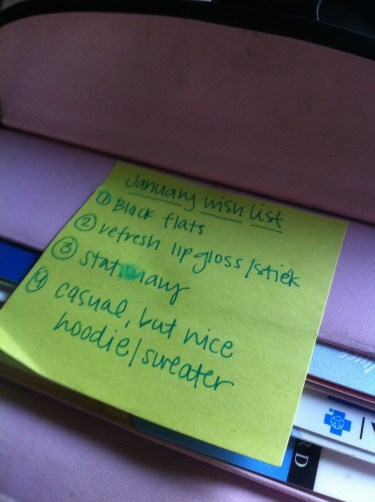 January wish list
① Black flats
② refresh lipgloss/stick
③ stationary
④ casual, but nice
hoodie/sweater
RD